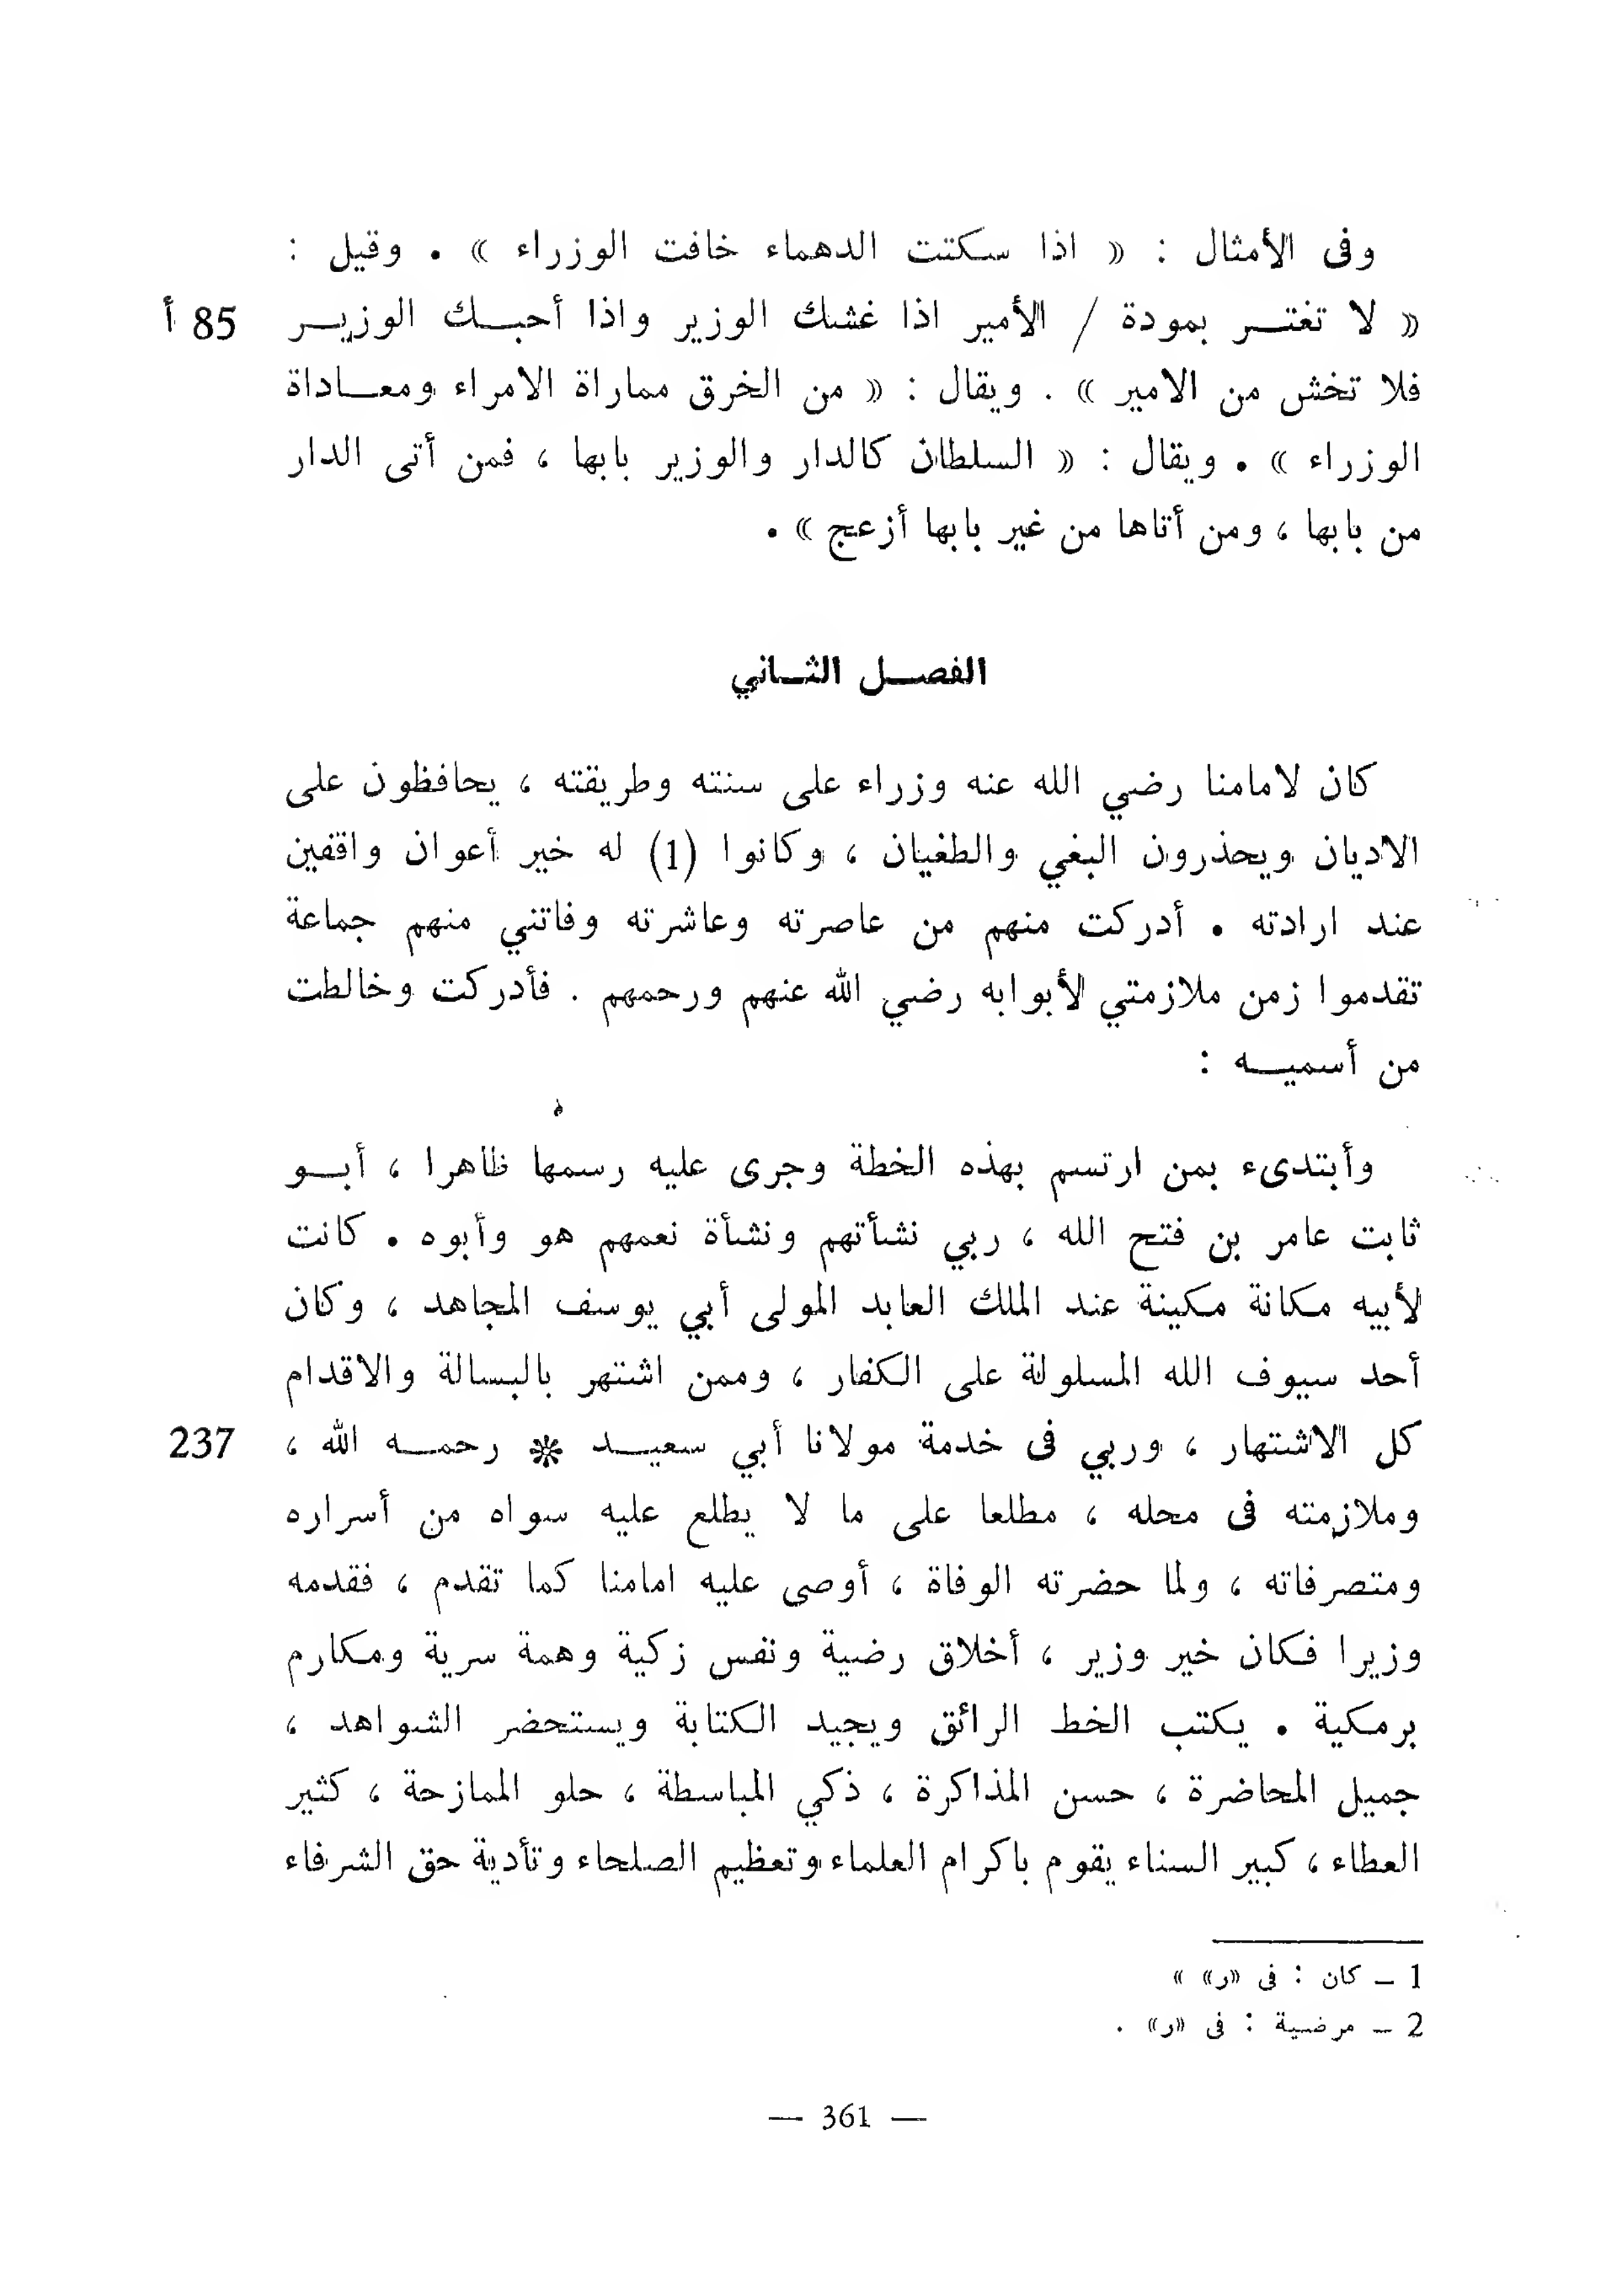 وفى الأمثال : « اذا سكتت الدهماء خافت الوزراء » . وقيل :
« لا تغتـــر بمودة / الأمير اذا غشك الوزير واذا أحبـــك الوزيـــر 85 أ
فلا تخش من الامير » . ويقال : « من الخرق مماراة الامراء ومعـــاداة
الوزراء » . ويقال : « السلطان كالدار والوزير بابها ، فمن أتى الدار
من بابها ، ومن أتاها من غير بابها أزعج » .
الفصـــل الثـــاني
كان لامامنا رضي الله عنه وزراء على سنته وطريقته ، يحافظون على
الاديان ويحذرون البغي والطغيان ، وكانوا (1) له خير أعوان واقفين
عند ارادته . أدركت منهم من عاصرته وعاشرته وفاتني منهم جماعة
تقدموا زمن ملازمتي لأبوابه رضي الله عنهم ورحمهم . فأدركت وخالطت
من أسميـــه :
وأبتدىء بمن ارتسم بهذه الخطة وجرى عليه رسمها ظاهرا ، أبـــو
ثابت عامر بن فتح الله ، ربي نشأتهم ونشأة نعمهم هو وأبوه . كانت
لأبيه مكانة مكينة عند الملك العابد المولى أبي يوسف المجاهد ، وكان
أحد سيوف الله المسلولة على الكفار ، وممن اشتهر بالبسالة والاقدام
كل الاشتهار ، وربي فى خدمة مولانا أبي سعيـــد * رحمـــه الله ، 237
وملازمته فى محله ، مطلعا على ما لا يطلع عليه سواه من أسراره
ومتصرفاته ، ولما حضرته الوفاة ، أوصى عليه امامنا كما تقدم ، فقدمه
وزيرا فكان خير وزير ، أخلاق رضية ونفس زكية وهمة سرية ومكارم
برمكية . يكتب الخط الرائق ويجيد الكتابة ويستحضر الشواهد ،
جميل المحاضرة ، حسن المذاكرة ، ذكي المباسطة ، حلو الممازحة ، كثير
العطاء ، كبير السناء يقوم باكرام العلماء وتعظيم الصلحاء وتأدية حق الشرفاء
1 ــ كان : فى «ر» »
2 ــ مرضية : فى «ر» .
— 361 —